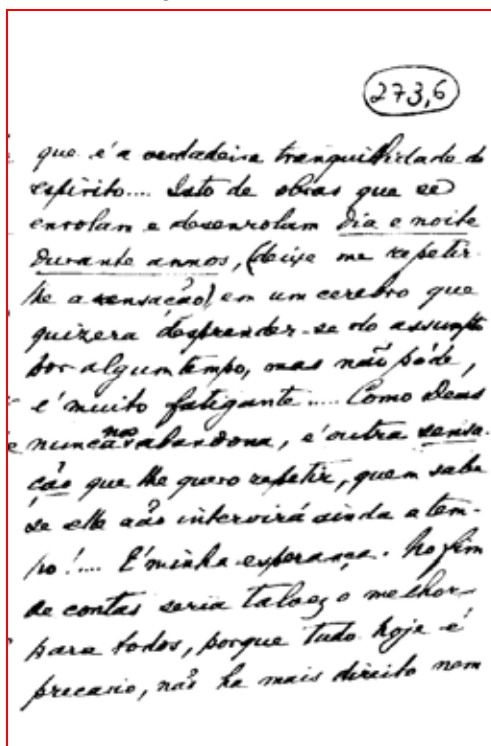 273,6
que é a verdadeira tranquillidade do
espirito.... Isto de obras que se
enrolan e desenrolam dia e noite
durante annos, (deixe me repetir-
lhe a sensação) em um cerebro que
quizera desprender-se do assumpto
por algum tempo, mas não póde,
é muito fatigante..... Como Deus
nunca nos abandona, é outra sensa-
ção que lhe quero repetir, quem sabe
se elle não intervirá ainda a tem-
po!.... E' minha esperança. No fim
de contas seria talvez o melhor
para todos, porque tudo hoje é
precario, não ha mais direito nem